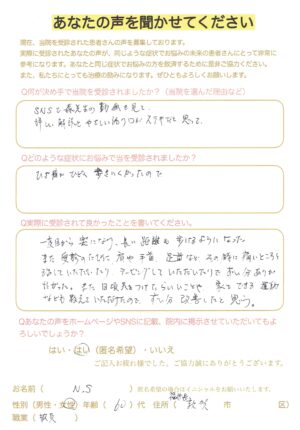 あなたの声を聞かせてください
現在、当院を受診された患者さんの声を募集しております。
実際に受診されたあなたの声が、同じような症状でお悩みの未来の患者さんにとって非常に
参考になります。あなたと同じ症状でお悩みの方を救済するために是非ご協力ください。
また、私たちにとっても治療の励みになります。ぜひともよろしくお願いします。
Q何が決め手で当院を受診されましたか？（当院を選んだ理由など）
SNSで森先生の動画を見て、
詳しい解説とやさしい語り口がステキだと思って。
Qどのような症状にお悩みで当を受診されましたか？
ひざ痛がひどく歩きにくかったので
Q実際に受診されて良かったことを書いてください。
一度目から楽になり、長い距離も歩けるようになった
また受診のたびに肩や手首、足首など、その時に痛いところも
治していただいたり、テーピングしていただいたりでずい分ありが
たかった。また日頃気をつけたらいいことや家でできる運動
なども教えていただけたので、ずい分改善したと思う。
Qあなたの声をホームページやSNSに記載、院内に掲示させていただいてもよ
ろしいでしょうか？
はい・はい（匿名希望）・いいえ
ご記入お疲れ様でした。ご協力誠にありがとうございます。
お名前（ N.S ）匿名希望の場合はイニシャルをお願いいたします。
性別（男性・女性）年齢（60）代 住所（ 福井県 敦賀 市 区）
職業（教員）